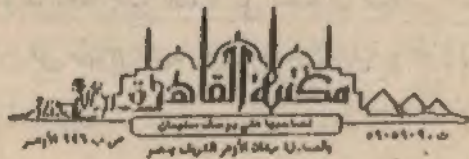 مكتبة القاهرة
لصاحبها على يوسف سليمان
ت : ٥٩٠٥٩٠٩
ص.ب ٩٤٦ الأزهر
بالصنادقية بميدان الأزهر الشريف بمصر